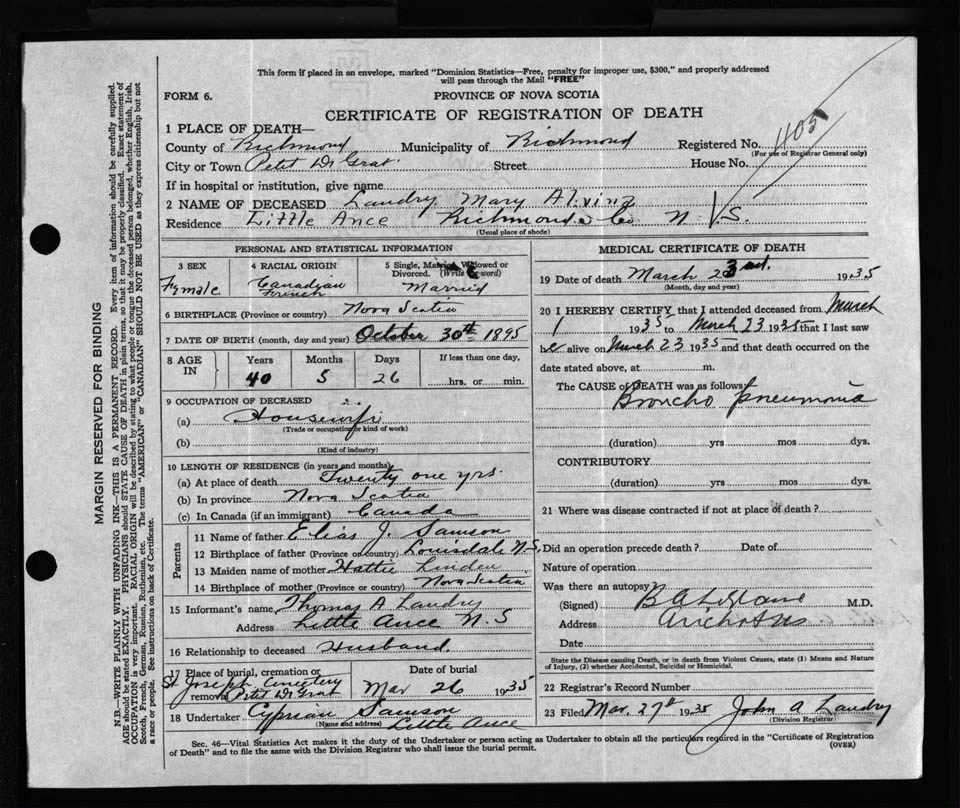 This form if placed in an envelope, marked "Dominion Statistics—Free, penalty for improper use, $300," and properly addressed
will pass through the Mail "FREE"
FORM 6.
PROVINCE OF NOVA SCOTIA
CERTIFICATE OF REGISTRATION OF DEATH
1 PLACE OF DEATH—
County of Richmond Municipality of Richmond Registered No. 1105
(For use of Registrar General only)
City or Town Petit De Grat Street House No.
If in hospital or institution, give name
2 NAME OF DECEASED Landry Mary Alvina
Residence Little Ance Richmond Co. N. S.
(Usual place of abode)
PERSONAL AND STATISTICAL INFORMATION
3 SEX
Female
4 RACIAL ORIGIN
Canadian
French
5 Single, Married, Widowed or
Divorced. (Write the word)
Married
6 BIRTHPLACE (Province or country) Nova Scotia
7 DATE OF BIRTH (month, day and year) October 30th 1895
8 AGE IN
Years Months Days If less than one day,
40 5 26 hrs. or min.
9 OCCUPATION OF DECEASED
(a) Housewife
(Trade or occupation or kind of work)
(b)
(Kind of industry)
10 LENGTH OF RESIDENCE (in years and months)
(a) At place of death Twenty one yrs.
(b) In province Nova Scotia
(c) In Canada (if an immigrant) Canada
Parents
11 Name of father Elias J. Samson
12 Birthplace of father (Province or country) Louisdale N.S.
13 Maiden name of mother Hattie Linden
14 Birthplace of mother (Province or country) Nova Scotia
15 Informant's name Thomas A Landry
Address Little Ance N.S
16 Relationship to deceased Husband.
17 Place of burial, cremation or removal St Joseph Cemetery Petit De Grat
Date of burial
Mar 26 1935
18 Undertaker Cyprian Samson Little Ance
(Name and address)
MEDICAL CERTIFICATE OF DEATH
19 Date of death March 23rd. 1935
(Month, day and year)
20 I HEREBY CERTIFY that I attended deceased from March
1 1935 to March 23 1935 that I last saw
her alive on March 23 1935 and that death occurred on the
date stated above, at m.
The CAUSE of DEATH was as follows:
Broncho Pneumonia
(duration) yrs mos dys.
CONTRIBUTORY
(duration) yrs mos dys.
21 Where was disease contracted if not at place of death?
Did an operation precede death? Date of
Nature of operation
Was there an autopsy?
(Signed) M.D.
Address Arichat N.S
Date
State the Disease causing Death, or in death from Violent Causes, state (1) Means and Nature
of Injury, (2) whether Accidental, Suicidal or Homicidal.
22 Registrar's Record Number
23 Filed Mar. 27th 1935 John A Landry
(Division Registrar)
Sec. 46—Vital Statistics Act makes it the duty of the Undertaker or person acting as Undertaker to obtain all the particulars required in the "Certificate of Registration
of Death" and to file the same with the Division Registrar who shall issue the burial permit.
(OVER)
MARGIN RESERVED FOR BINDING
N.B.—WRITE PLAINLY WITH UNFADING INK—THIS IS A PERMANENT RECORD. Every item of information should be carefully supplied.
AGE should be stated EXACTLY. PHYSICIANS should STATE CAUSE OF DEATH in plain terms, so that it may be properly classified. Exact statement of
OCCUPATION is very important. RACIAL ORIGIN will be described by stating to what people or tongue the deceased person belonged, whether English, Irish,
Scotch, French, German, Russian, Ruthenian, etc. The terms "AMERICAN" or "CANADIAN" SHOULD NOT BE USED as they express citizenship but not
a race or people. See instructions on back of Certificate.